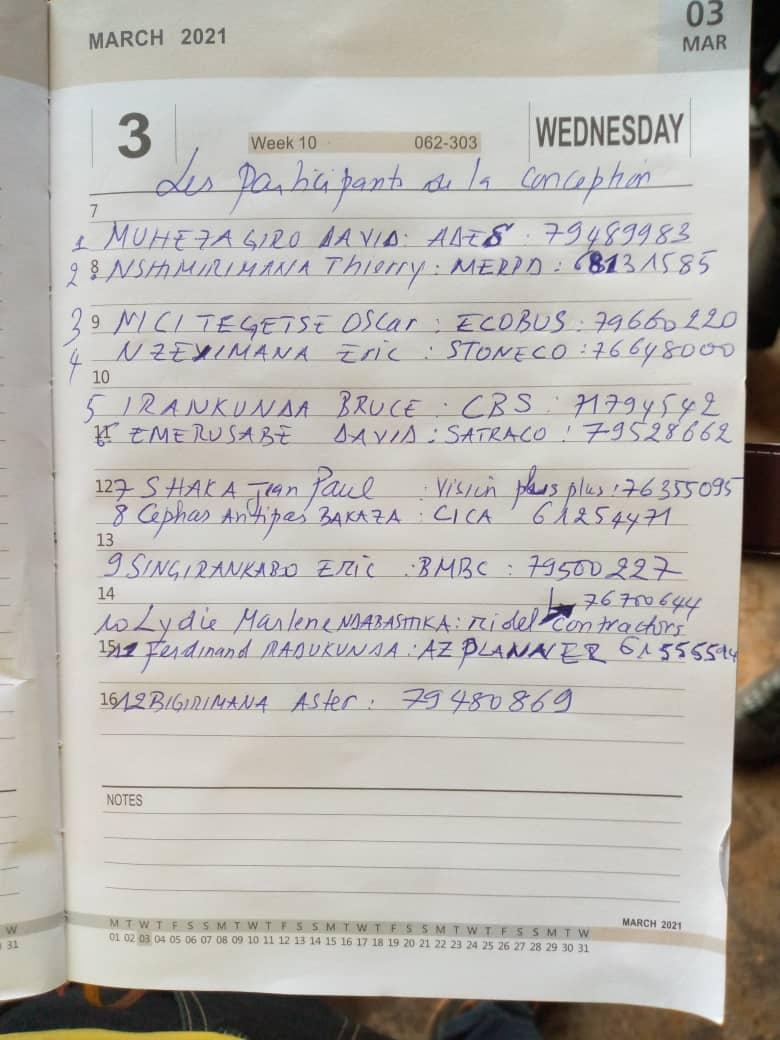 03
MARCH 2021
MAR
3
Week 10
062-303
WEDNESDAY
Les Participants de la conception
7
1 MUHEZAGIRO DAVID: ADES : 79489983
8
2 NSHIMIRIMANA Thierry: MERPD : 68131585
9
3 NICITEGETSE OScar : ECOBUS : 79660220
4 NZEYIMANA Eric : STONECO : 76648000
10
5 IRANKUNDA BRUCE : CBS : 71794542
11
6 EMERUSABE DAVID : SATRACO : 79528662
12
7 SHAKA Jean Paul : Vision plus plus : 76355095
8 Cephas Antipas BAKAZA : CICA 61254471
13
9 SINGIRANKABO Eric : BMBC : 79500227
14
76700644
10 Lydie Marlene : ridel contractors
15
11 Ferdinand RADUKUNDA : AZ PLANNER
16
12 BIGIRIMANA Aster : 79480869
NOTES
M T W T F S S M T W T F S S M T W T F S S M T W T F S S M T W
MARCH 2021
01 02 03 04 05 06 07 08 09 10 11 12 13 14 15 16 17 18 19 20 21 22 23 24 25 26 27 28 29 30 31
W
31